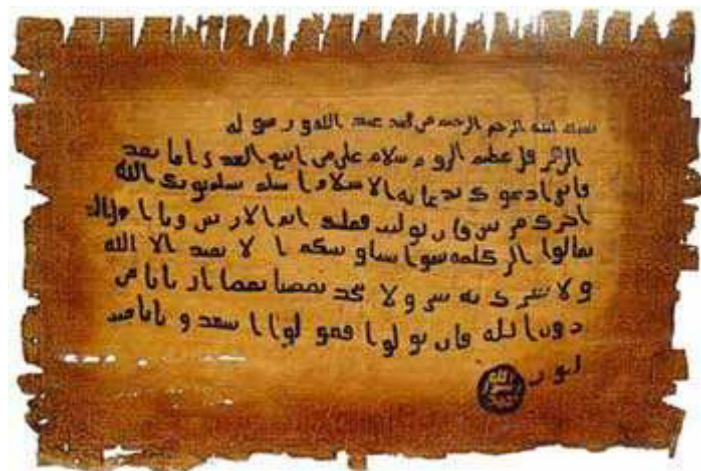 بسم الله الرحمن الرحيم من محمد عبد الله ورسوله
الى هرقل عظيم الروم سلام على من اتبع الهدى اما بعد
فانى ادعوك بدعاية الاسلام اسلم تسلم يوتك الله
اجرك مرتين فان توليت فعليك اثم الاريسين ويا اهل الكتاب
تعالوا الى كلمة سوا بيننا وبينكم الا نعبد الا الله
ولا نشرك به شى ولا يتخذ بعضنا بعضا اربابا من
دون الله فان تولوا فقولوا اشهدوا بانا مسلمون
الله
رسول
محمد